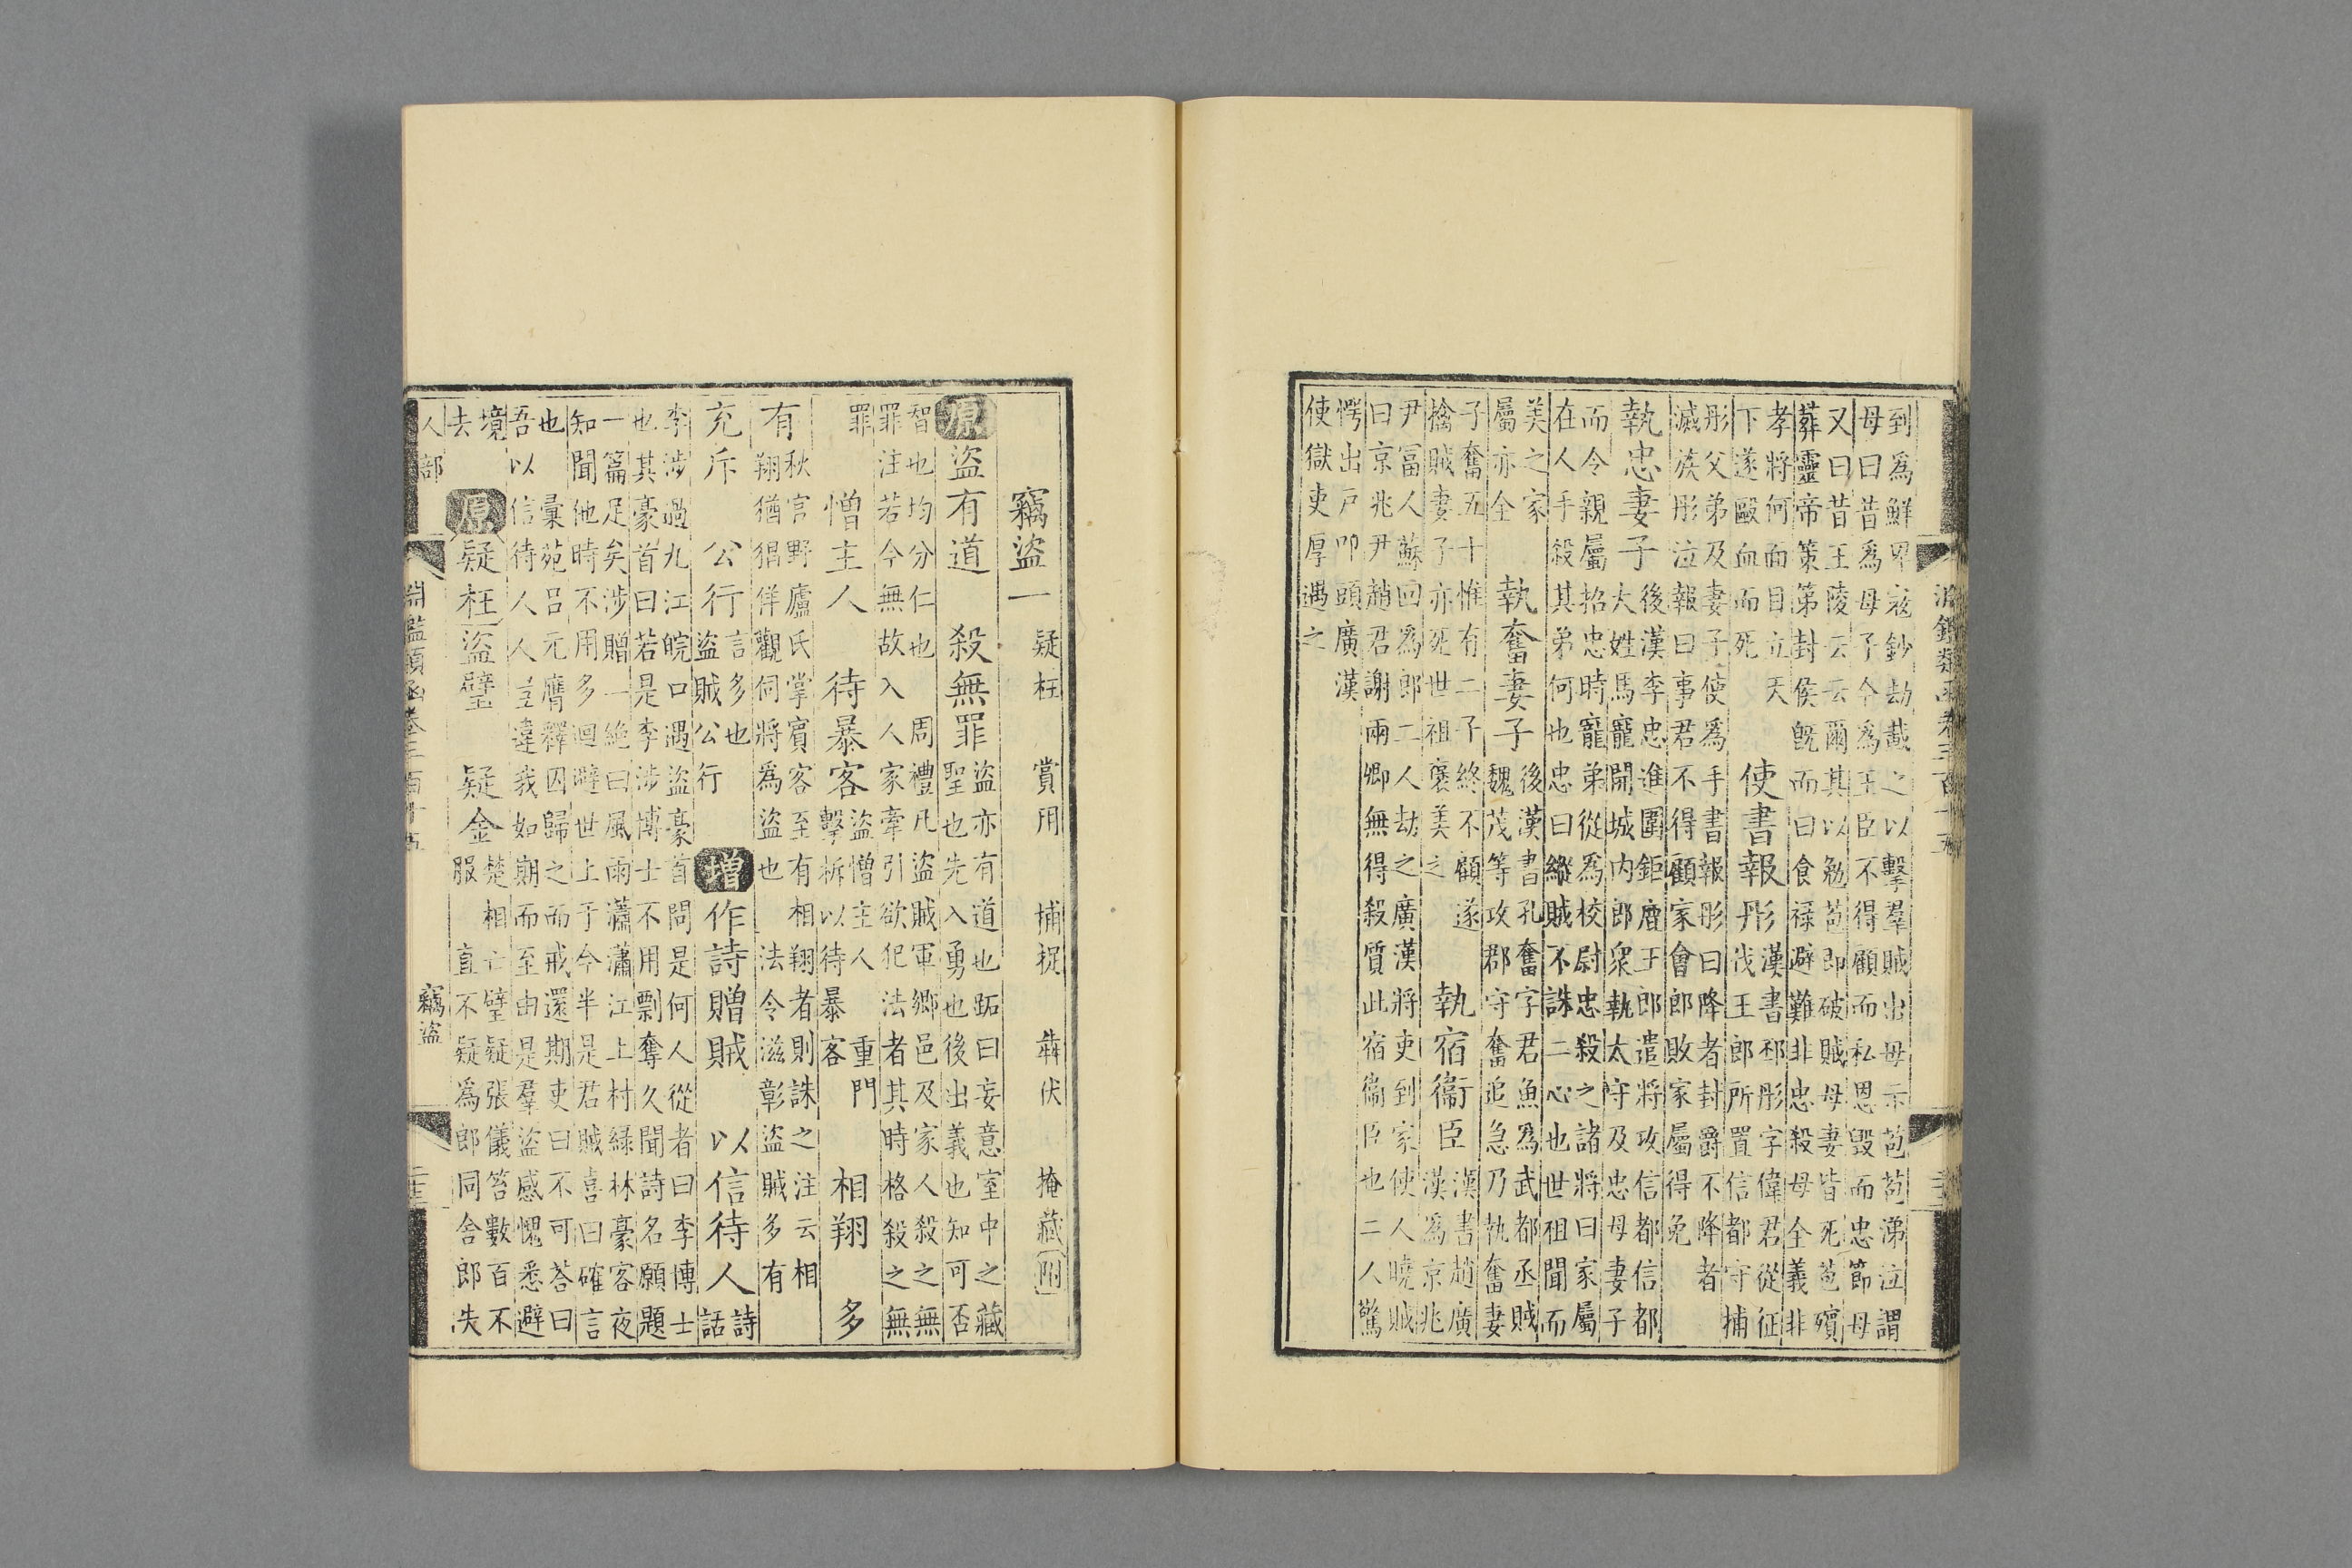 淵鑑類函卷三百十五
到爲鮮卑寇鈔劫載之以擊羣賊出母示苞苞涕泣謂
母曰昔爲母子今爲王臣不得顧而私恩毀而忠節母
又曰昔王陵云云爾其以勉苞即破賊母妻皆死苞殯
葬靈帝策第封侯旣而曰食祿避難非忠殺母全義非
孝將何面目立天
下遂毆血而死
使書報彤
漢書邳彤字偉君從征
伐王郎所置信都守捕
彤父弟及妻子使爲手書報彤曰降者封爵不降者
滅族彤泣報曰事君不得顧家會郎敗家屬得免
執忠妻子
後漢李忠進圍鉅鹿王郎遣將攻信都信都
大姓馬寵開城内郎衆執太守及忠母妻子
而令親屬招忠時寵弟從爲校尉忠殺之諸將曰家屬
在人手殺其弟何也忠曰縱賊不誅二心也世祖聞而
美之家
屬亦全
執奮妻子
後漢書孔奮字君魚爲武都丞賊
魏茂等攻郡守奮追急乃執奮妻
子奮五十惟有二子終不顧遂
擒賊妻子亦死世祖褒美之
執宿衞臣
漢書趙廣
漢爲京兆
尹富人蘇回爲郎二人劫之廣漢將吏到家使人曉賊
曰京兆尹趙君謝兩卿無得殺質此宿衞臣也二人驚
愕出戸叩頭廣漢
使獄吏厚遇之
竊盜一 疑枉 賞用 捕捉 犇伏 掩藏附
原 盜有道 殺無罪
盜亦有道也跖曰妄意室中之藏
聖也先入勇也後出義也知可否
智也均分仁也 周禮凡盜賊軍鄉邑及家人殺之無
罪注若今無故入人家牽引欲犯法者其時格殺之無
罪
憎主人 待暴客
盜憎主人 重門
擊柝以待暴客
相翔 多
有
秋官野廬氏掌賓客至有相翔者則誅之注云相
翔猶猖佯觀伺將爲盜也 法令滋彰盜賊多有
充斥 公行
言多也
盜賊公行
增 作詩贈賊 以信待人
詩
話
李涉過九江皖口遇盜豪首問是何人從者曰李博士
也其豪首曰若是李涉博士不用剽奪久聞詩名願題
一篇足矣涉贈一絶曰風雨瀟瀟江上村綠林豪客夜
知聞他時不用多迴避世上于今半是君賊喜曰確言
也 彙苑呂元膺釋囚歸之而戒還期吏曰不可荅曰
吾以信待人人豈違我如期而至由是羣盜感愧悉避
境
去
原 疑枉 盜璧 疑金
楚相亡璧疑張儀笞數百不
服 直不疑爲郎同舍郎失
人部
淵鑑類函卷三百十五
竊盜